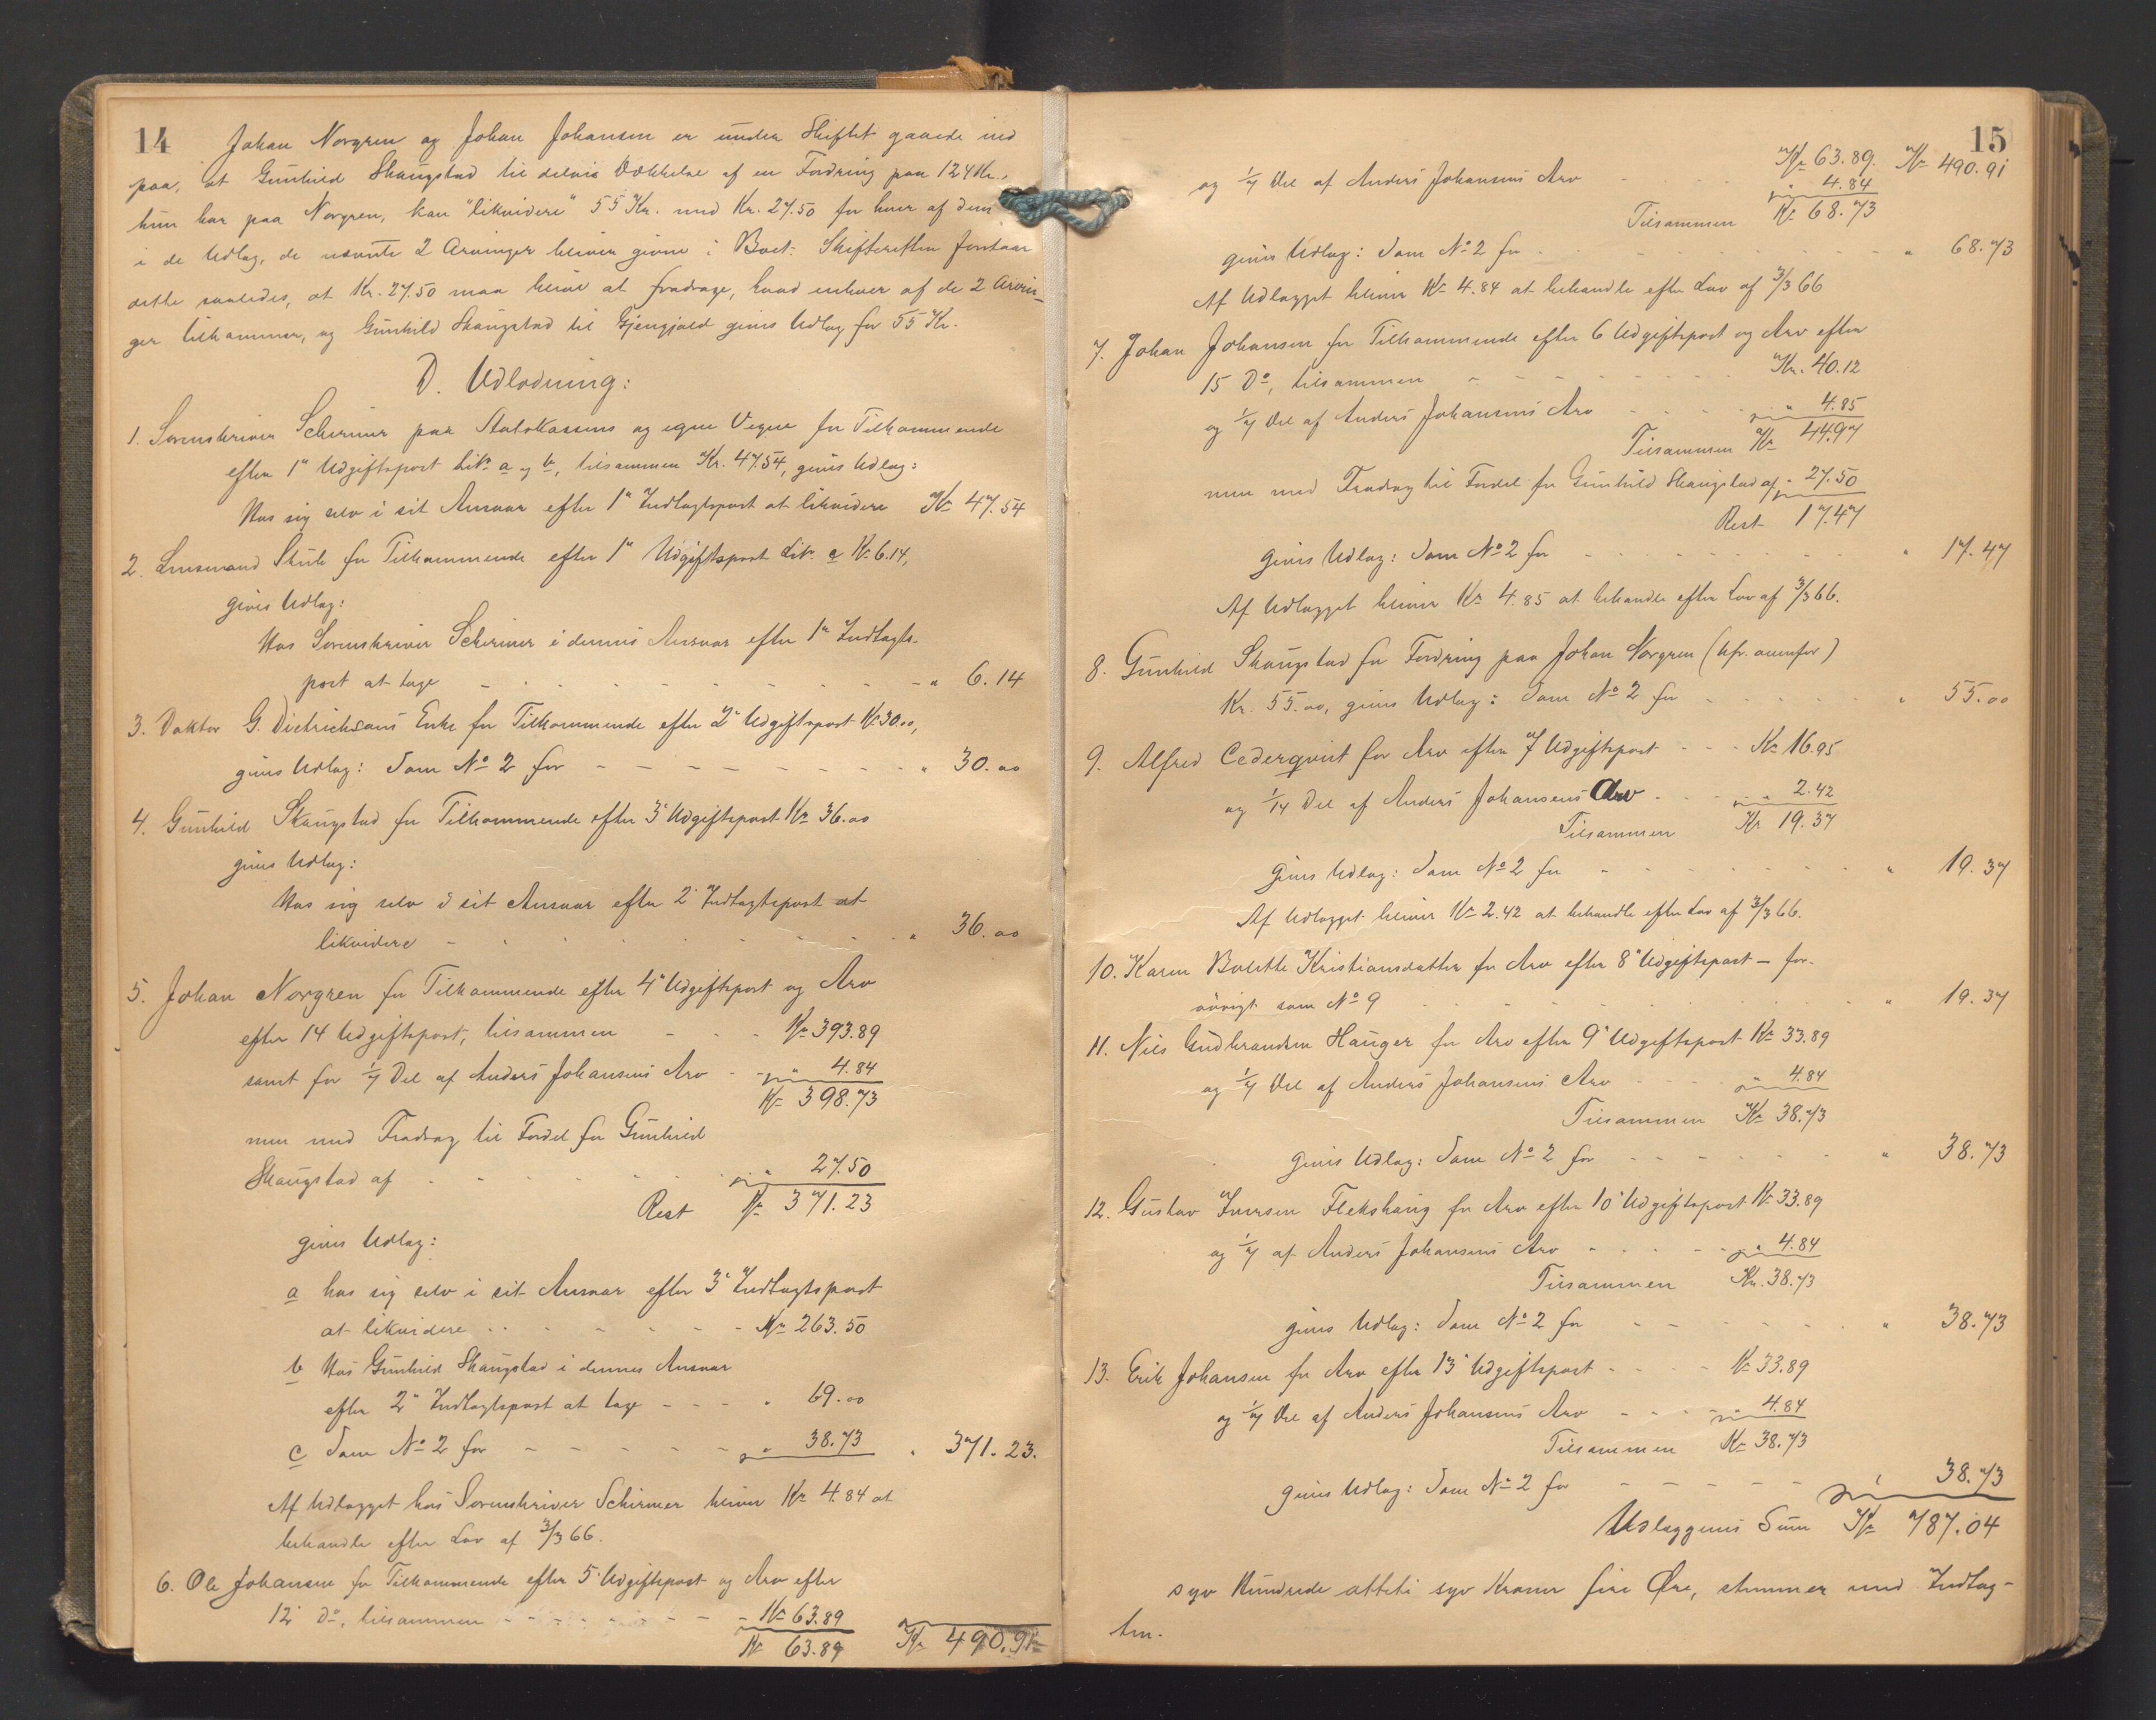 14
Johan Norgren og Johan Johansen er under Skiftet gaaede ind
paa, at Gunhild Skaugstad til delvis Dækkelse af en Fordring paa 124 Kr.,
hun har paa Norgren, kan "likvidere" 55 Kr. med Kr. 27.50 for hver af dem
i de Udlæg, de nævnte 2 Arvinger bliver givne i Boet. Skifteretten forstaar
dette saaledes, at Kr. 27.50 maa blive at fradrage, hvad enhver af de 2 Arvin-
ger tilkommer, og Gunhild Skaugstad til Gjengjæld gives Udlæg for 55 Kr.
D. Udlodning:
1. Sorenskriver Schirmer paa Statskassens og egne Vegne for Tilkommende
efter 1ste Udgiftspost Litr. a og b, tilsammen Kr. 47.54, gives Udlæg:
Hos sig selv i sit Ansvar efter 1ste Indtægtspost at likvidere Kr 47.54
2. Lensmand Skule for Tilkommende efter 1ste Udgiftspost Litr. a Kr. 6.14,
gives Udlæg:
Hos Sorenskriver Schirmer i dennes Ansvar efter 1ste Indtægts-
post at tage - - - - - " 6.14
3. Doktor G. Dietrichsons Enke for Tilkommende efter 2' Udgiftspost Kr. 30.00,
gives Udlæg: Som No 2 for - - - - - " 30.00
4. Gunhild Skaugstad for Tilkommende efter 3' Udgiftspost Kr 36.00
gives Udlæg:
Hos sig selv i sit Ansvar efter 2' Indtægtspost at
likvidere - - - - - " 36.00
5. Johan Norgren for Tilkommende efter 4' Udgiftspost og Arv
efter 14 Udgiftspost, tilsammen - - - Kr 393.89
samt for 1/7 Del af Anders Johansens Arv - " 4.84
Kr 398.73
men med Fradrag til Fordel for Gunhild
Skaugstad af - - - - " 27.50
Rest Kr 371.23
gives Udlæg:
a hos sig selv i sit Ansvar efter 3' Indtægtspost
at likvidere - - - - Kr 263.50
b Hos Gunhild Skaugstad i dennes Ansvar
efter 2' Indtægtspost at tage - - - " 69.00
c Som No 2 for - - - - - " 38.73 " 371.23.
Af Udlægget hos Sorenskriver Schirmer bliver Kr 4.84 at
behandle efter Lov af 3/3 66.
6. Ole Johansen for Tilkommende efter 5' Udgiftspost og Arv efter
12' Do, tilsammen - - - - Kr 63.89
Kr 63.89 Kr 490.91
15
Kr 63.89. Kr 490.91
og 1/7 Del af Anders Johansens Arv - - - " 4.84
Tilsammen Kr 68.73
gives Udlæg: Som No 2 for - - - - - " 68.73
Af Udlægget bliver Kr 4.84 at behandle efter Lov af 3/3 66
7. Johan Johansen for Tilkommende efter 6 Udgiftspost og Arv efter
15 Do, tilsammen - - - - Kr. 40.12
og 1/7 Del af Anders Johansens Arv - - - " 4.85
Tilsammen Kr 44.97
men med Fradrag til Fordel for Gunhild Skaugstad af " 27.50
Rest 17.47
gives Udlæg: Som No 2 for - - - - - " 17.47
Af Udlægget bliver Kr 4.85 at behandle efter Lov af 3/3 66.
8. Gunhild Skaugstad for Fordring paa Johan Norgren (kfr. ovenfor)
Kr. 55.00, gives Udlæg: Som No 2 for - - - - " 55.00
9. Alfred Cederqvist for Arv efter 7' Udgiftspost - - - Kr 16.95
og 1/14 Del af Anders Johansens Arv - - - " 2.42
Tilsammen Kr 19.37
gives Udlæg: Som No 2 for - - - - - " 19.37
Af Udlægget bliver Kr 2.42 at behandle efter Lov af 3/3 66.
10. Karen Bolette Kristiansdatter for Arv efter 8' Udgiftspost – for-
øvrigt som No 9 - - - - - " 19.37
11. Nils Gudbrandsen Hauger for Arv efter 9' Udgiftspost Kr 33.89
og 1/7 Del af Anders Johansens Arv - - - " 4.84
Tilsammen Kr 38.73
gives Udlæg: Som No 2 for - - - - - " 38.73
12. Gustav Iversen Flekshaug for Arv efter 10' Udgiftspost Kr 33.89
og 1/7 af Anders Johansens Arv - - - - " 4.84
Tilsammen Kr. 38.73
gives Udlæg: Som No 2 for - - - - - " 38.73
13. Erik Johansen for Arv efter 13' Udgiftspost - - - Kr 33.89
og 1/7 Del af Anders Johansens Arv - - - " 4.84
Tilsammen Kr 38.73
gives Udlæg: Som No 2 for - - - - - " 38.73
Udlæggenes Sum Kr 787.04
syv Hundrede otteti syv Kroner fire Øre, stemmer med Indtæg-
ten.